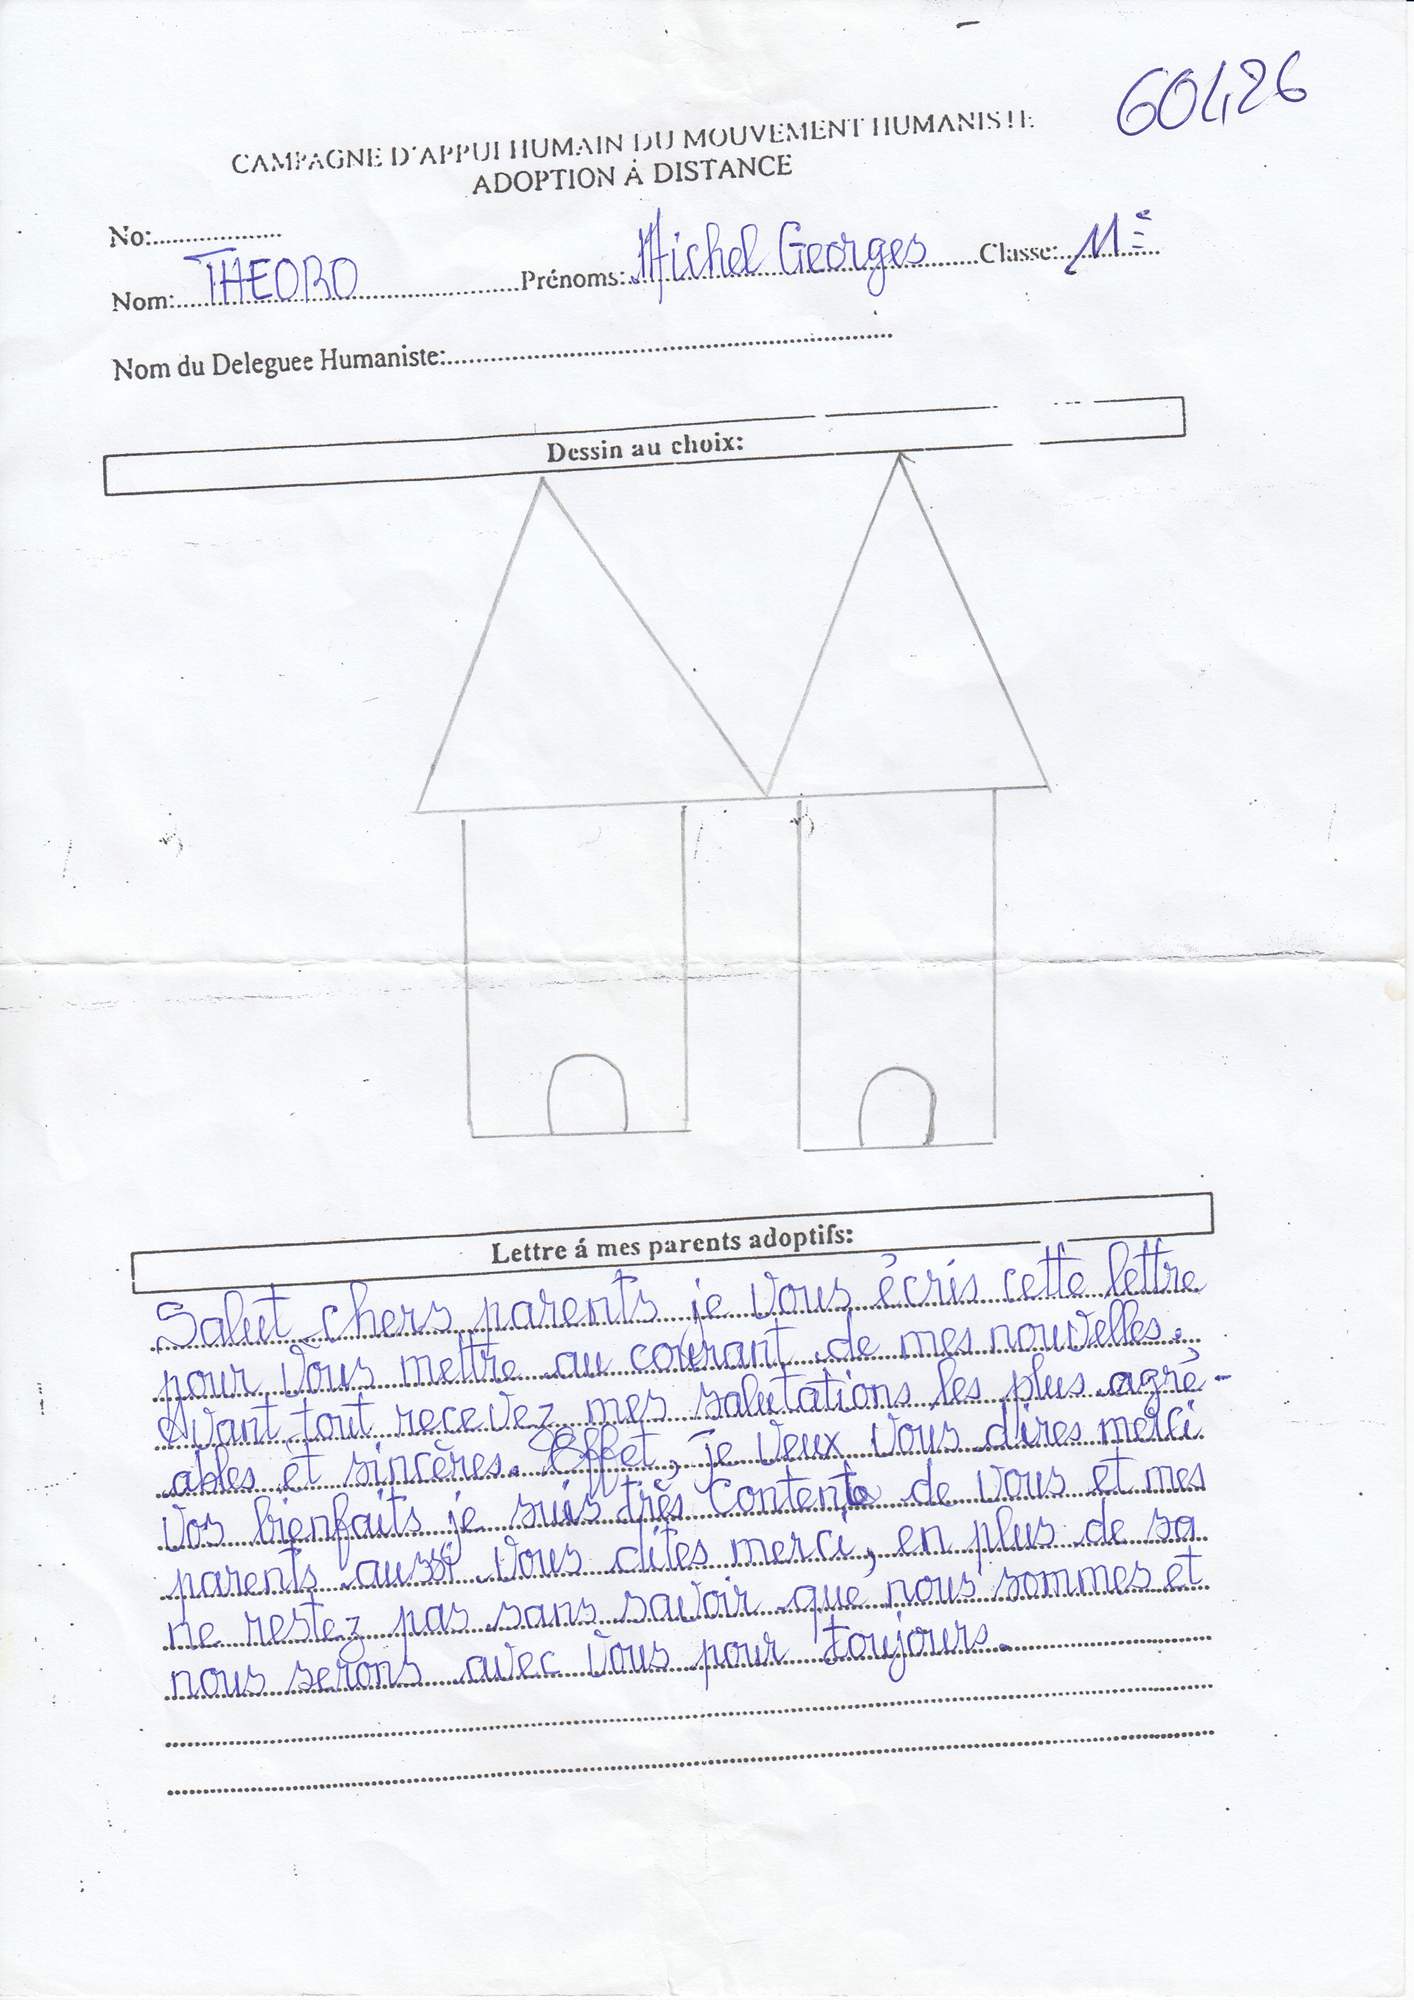 60426
CAMPAGNE D'APPUI HUMAIN DU MOUVEMENT HUMANISTE
ADOPTION À DISTANCE
No:....................
Nom: THEORO Prénoms: Michel Georges Classe: 11è
Nom du Deleguee Humaniste:....................
Dessin au choix:
Lettre á mes parents adoptifs:
Salut chers parents je vous écris cette lettre
pour vous mettre au courant de mes nouvelles.
Avant tout recevez mes salutations les plus agré-
ables et sincères. Effet, je veux vous dires merci
vos bienfaits je suis très contente de vous et mes
parents aussi vous dites merci, en plus de sa
ne restez pas sans savoir que nous sommes et
nous serons avec vous pour toujours.